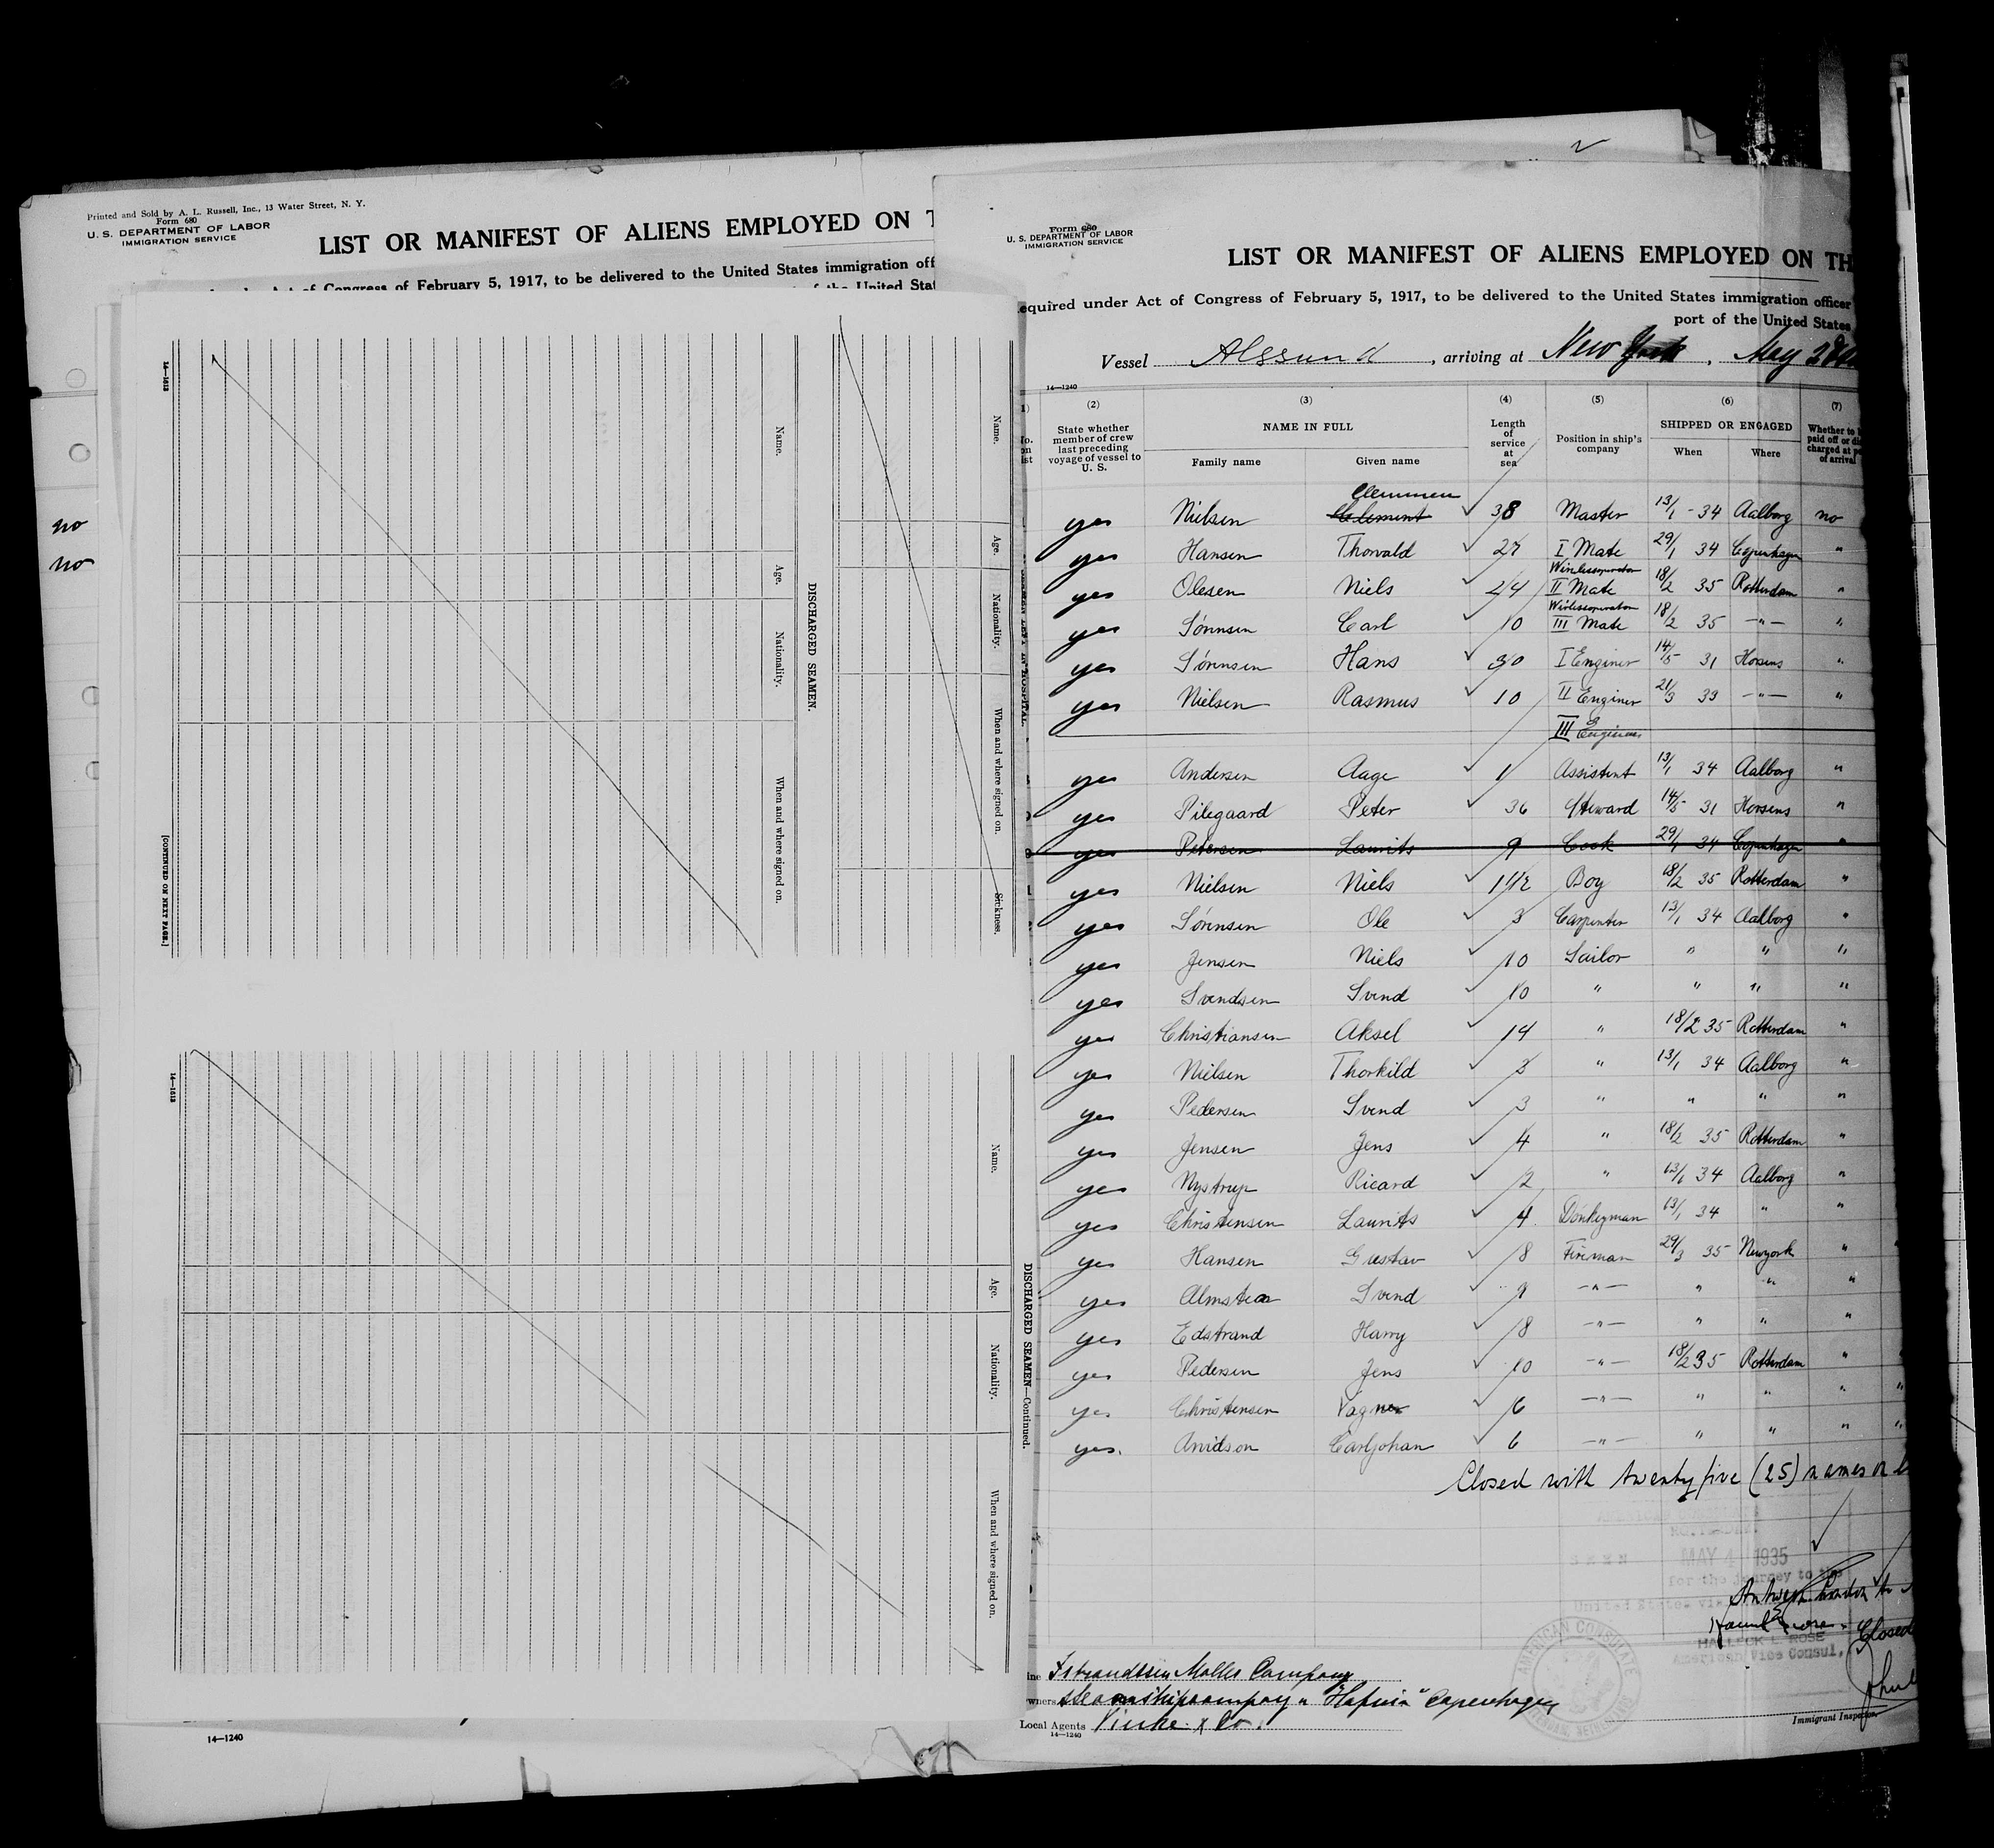 Printed and Sold by A. L. Russell, Inc., 13 Water Street, N. Y.
Form 680
U. S. DEPARTMENT OF LABOR
IMMIGRATION SERVICE
LIST OR MANIFEST OF ALIENS EMPLOYED ON
Act of Congress of February 5, 1917, to be delivered to the United States immigration off
of the United Stat
no
no
14—1613
[CONTINUED ON NEXT PAGE.]
Name.
Age.
Nationality.
When and where signed on.
DISCHARGED SEAMEN.
Name.
Age.
Nationality.
When and where signed on.
Sickness.
14—1613
Name.
Age.
Nationality.
When and where signed on.
DISCHARGED SEAMEN—Continued.
14—1240
Form 680
U. S. DEPARTMENT OF LABOR
IMMIGRATION SERVICE
LIST OR MANIFEST OF ALIENS EMPLOYED ON TH
equired under Act of Congress of February 5, 1917, to be delivered to the United States immigration officer
port of the United States
Vessel Alssund, arriving at New York, May 28th
14—1240
(2) (3) (4) (5) (6) (7)
State whether member of crew last preceding voyage of vessel to U. S.
NAME IN FULL
Family name Given name
Length of service at sea
Position in ship's company
SHIPPED OR ENGAGED
When Where
Whether to paid off or charged at of arrival
Clemmen
yes Nielsen Clement 38 Master 13/1 - 34 Aalborg no
yes Hansen Thorvald 27 I Mate 29/1 34 Copenhagen "
Wirelessoperator
yes Olesen Niels 24 II Mate 18/2 35 Rotterdam "
Wirelessoperator
yes Sørensen Carl 10 III Mate 18/2 35 —"— "
yes Sørensen Hans 30 I Enginer 14/5 31 Horsens "
yes Nielsen Rasmus 10 II Enginer 21/3 33 —"— "
III Enginer
yes Andersen Aage 1 Assistent 13/1 34 Aalborg "
yes Pilegaard Peter 36 Steward 14/5 31 Horsens "
yes Petersen Laurits 9 Cook 29/1 34 Copenhagen "
yes Nielsen Niels 1 1/2 Boy 18/2 35 Rotterdam "
yes Sørensen Ole 3 Carpenter 13/1 34 Aalborg "
yes Jensen Niels 10 Sailor " " "
yes Svendsen Svend 10 " " " "
yes Christiansen Aksel 14 " 18/2 35 Rotterdam "
yes Nielsen Thorkild 3 " 13/1 34 Aalborg "
yes Pedersen Svend 3 " " " "
yes Jensen Jens 4 " 18/2 35 Rotterdam "
yes Nystrup Ricard 2 " 13/1 34 Aalborg "
yes Christensen Laurits 4 Donkeyman 13/1 34 " "
yes Hansen Gustav 8 Fireman 29/3 35 Newyork "
yes Almsten Svend 9 —"— " " "
yes Edstrand Harry 18 —"— " " "
yes Pedersen Jens 10 —"— 18/2 35 Rotterdam "
yes Christensen Vagner 6 —"— " " "
yes. Arvidson Carljohan 6 —"— " " "
Closed with twenty five (25) names
SEEN
MAY 4 1935
for the journey to the
United States via
HALLECK L. ROSE
American Vice Consul,
Closed
AMERICAN CONSULATE
Isbrandtsen Moller Company
Owners Steamshipcompany "Hafnia" Copenhagen
Local Agents Vinke & Co.
14—1240
Immigrant Inspector